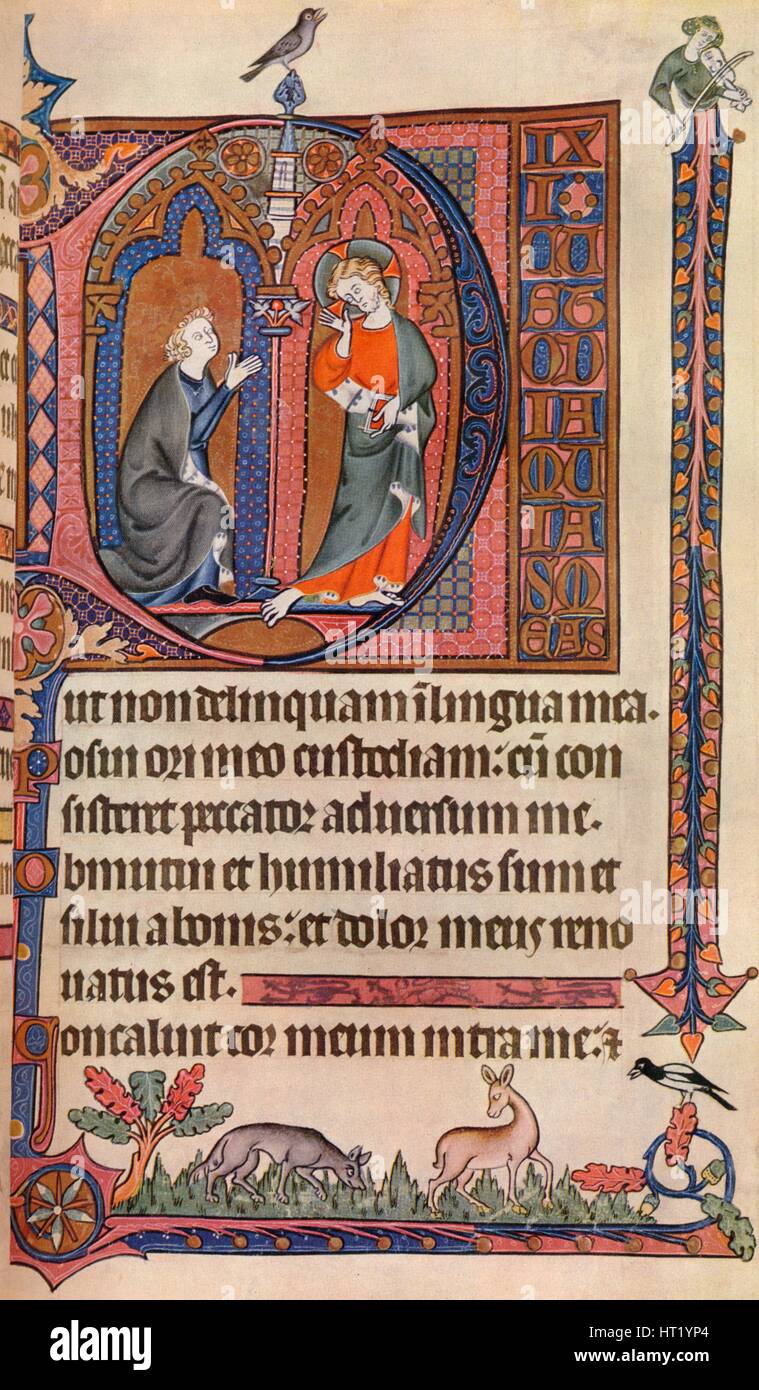 D
IX
I
CU
ST
OD
IA
MU
IA
SM
EAS
ut non delinquam ī lingua mea.
Posui ori meo custodiam: cū con
sisteret peccator adversum me.
Obmutui et humiliatus sum et
silui a bonis: et dolor meus reno
vatus est.
Concaluit cor meum intra me: ⁊
alamy
Image ID: HT1YP4
www.alamy.com